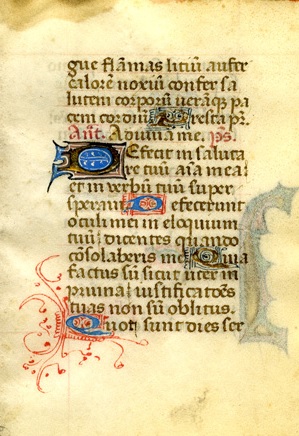 gue flāmas litiū aufer
calorē noxiū confer sa
lutem corporū verāque pa
cem cordiū Presta pr̄.
Añt. Adiuva me. ps̄.
Defecit in saluta
re tuū aīa mea
et in verbū tuū super
speravi Defecerunt
oculi mei in eloquium
tuū dicentes quando
cōsolaberis me Quia
factus sū sicut uter in
pruina iustificatōēs
tuas non sū oblitus.
Quot sunt dies ser